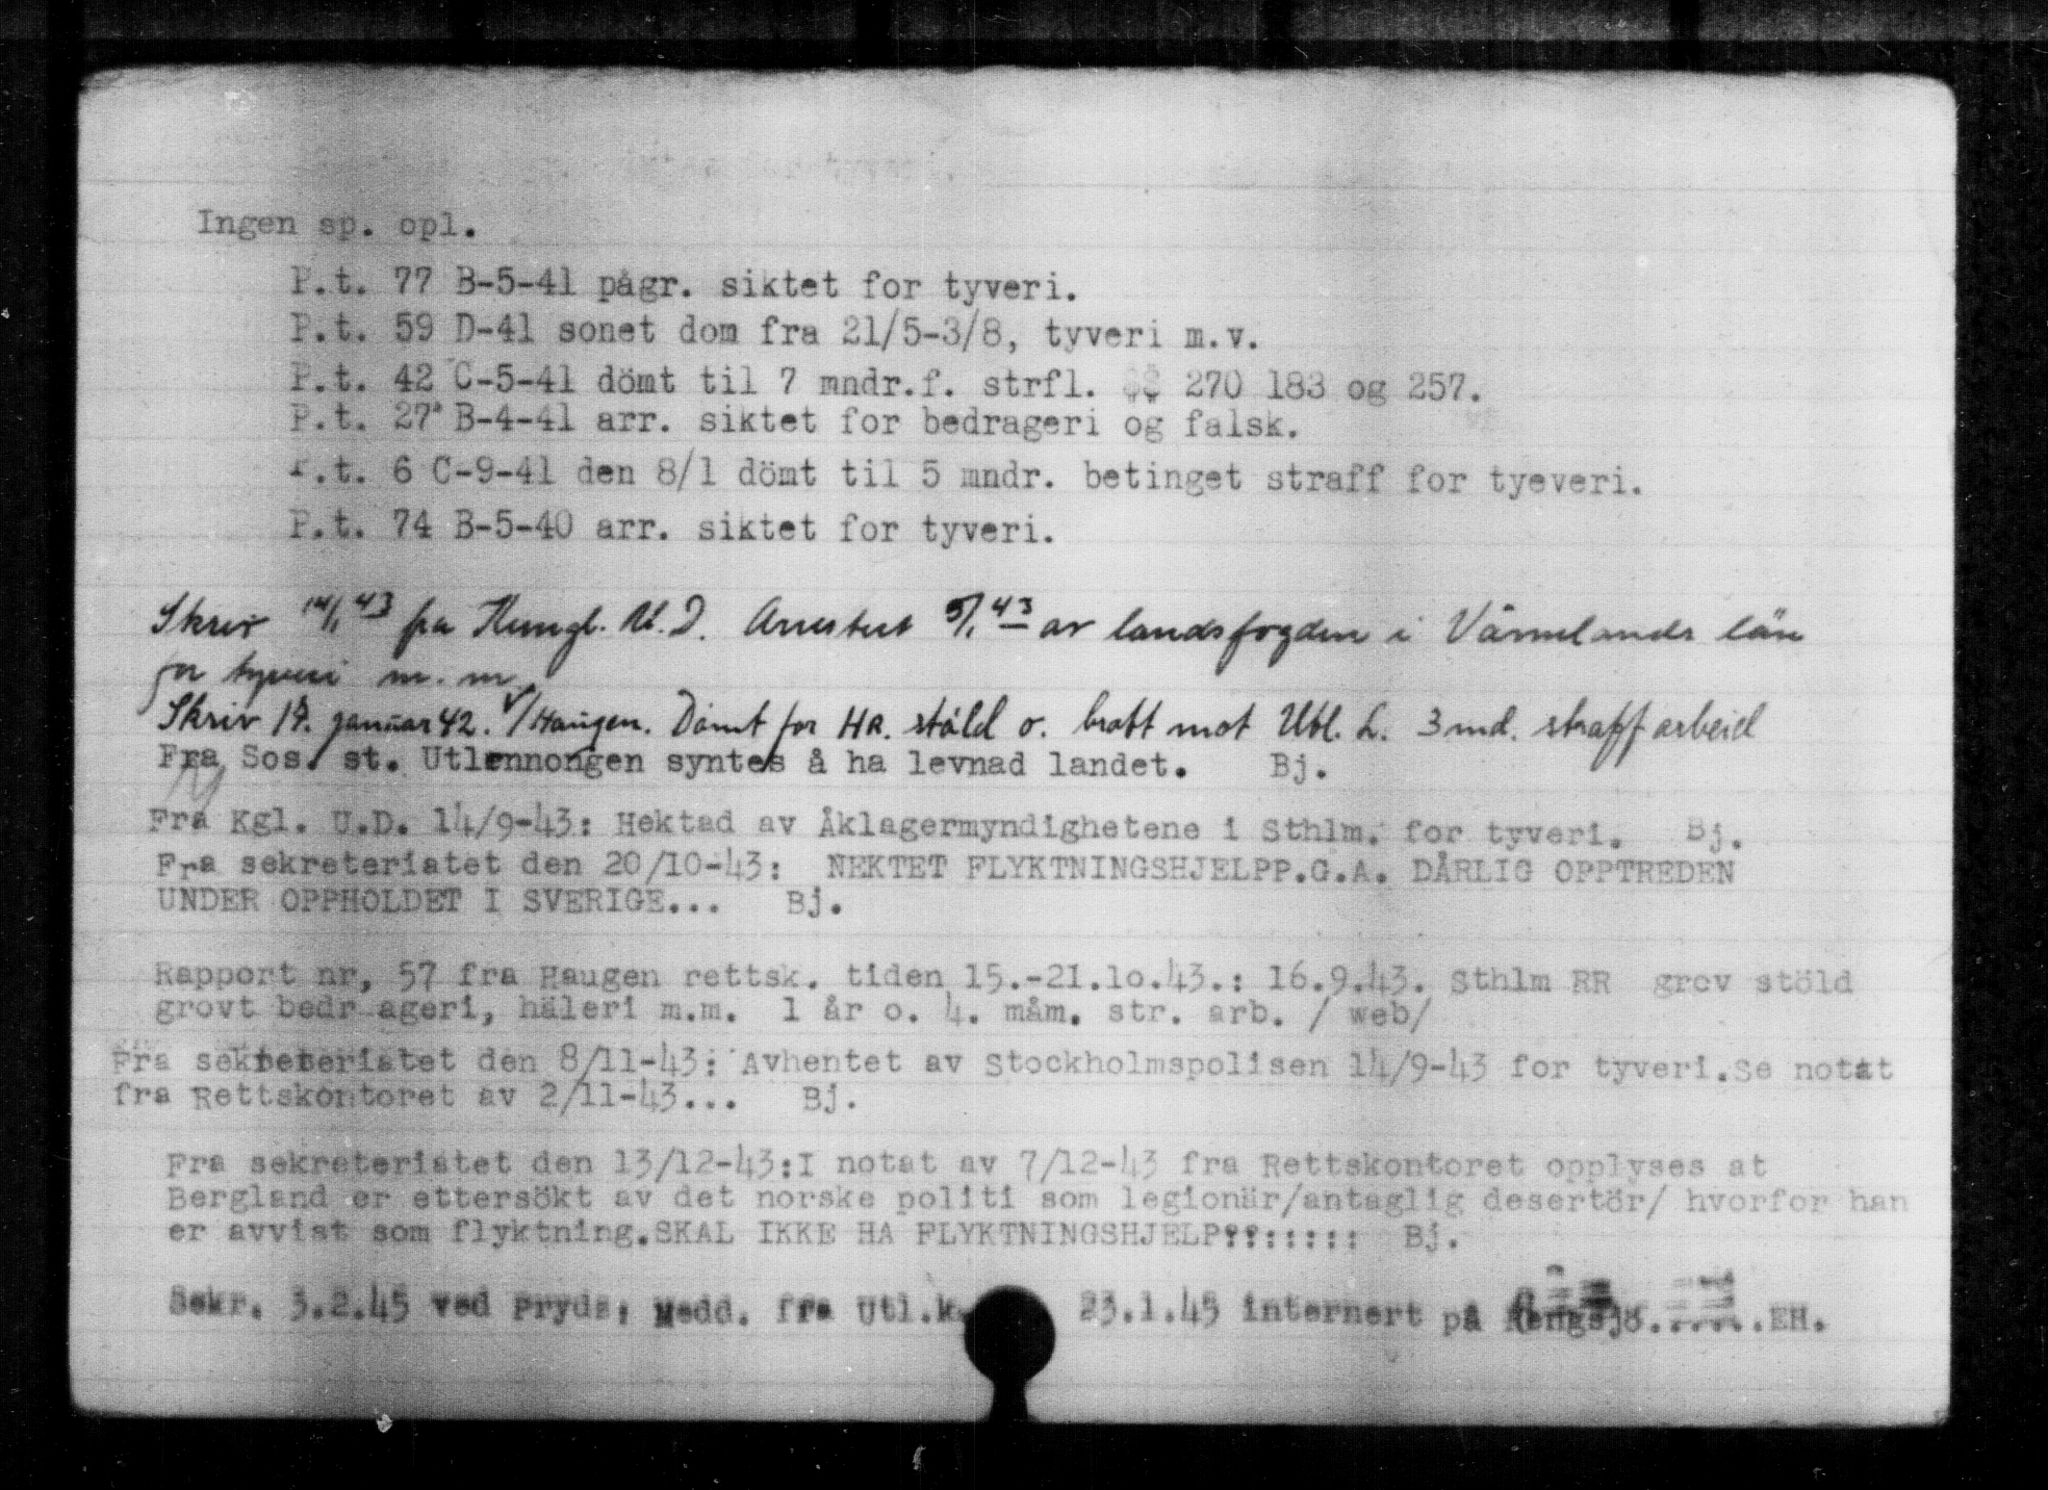 Ingen sp. opl.
P.t. 77 B-5-41 pågr. siktet for tyveri.
P.t. 59 D-41 sonet dom fra 21/5-3/8, tyveri m.v.
P.t. 42 C-5-41 dömt til 7 mndr.f. strfl. §§ 270 183 og 257.
P.t. 27 B-4-41 arr. siktet for bedrageri og falsk.
P.t. 6 C-9-41 den 8/1 dömt til 5 mndr. betinget straff for tyeveri.
P.t. 74 B-5-40 arr. siktet for tyveri.
Skriv 14/1 43 fra Kungl. U.D. Arrestert 5/1 43 av landsfogden i Värmlands län
for tyveri m.m.
Skriv januar 42. v/Haugen. Dömt for HR. stöld o. brott mot Utl. L. 3 md. straffarbeid
Fra Sos. st. Utlennongen syntes å ha levnad landet. Bj.
Fra Kgl. U.D. 14/9-43: Hektad av Åklagermyndighetene i Sthlm. for tyveri. Bj.
Fra sekreteriatet den 20/10-43: NEKTET FLYKTNINGSHJELPP.G.A. DÅRLIG OPPTREDEN
UNDER OPPHOLDET I SVERIGE... Bj.
Rapport nr, 57 fra Haugen rettsk. tiden 15.-21.10.43.: 16.9.43. Sthlm RR grov stöld
grovt bedr ageri, häleri m.m. 1 år o. 4. måm. str. arb. / web/
Fra sekreteriatet den 8/11-43: Avhentet av Stockholmspolisen 14/9-43 for tyveri.Se notat
fra Rettskontoret av 2/11-43... Bj.
Fra sekreteriatet den 13/12-43:I notat av 7/12-43 fra Rettskontoret opplyses at
Bergland er ettersökt av det norske politi som legionär/antaglig desertör/ hvorfor han
er avvist som flyktning.SKAL IKKE HA FLYKTNINGSHJELP::::::: Bj.
Sekr. 3.2.45 ved Pryds: Medd. fra Utl.k. 23.1.45 internert på Rengsjö.......EH.